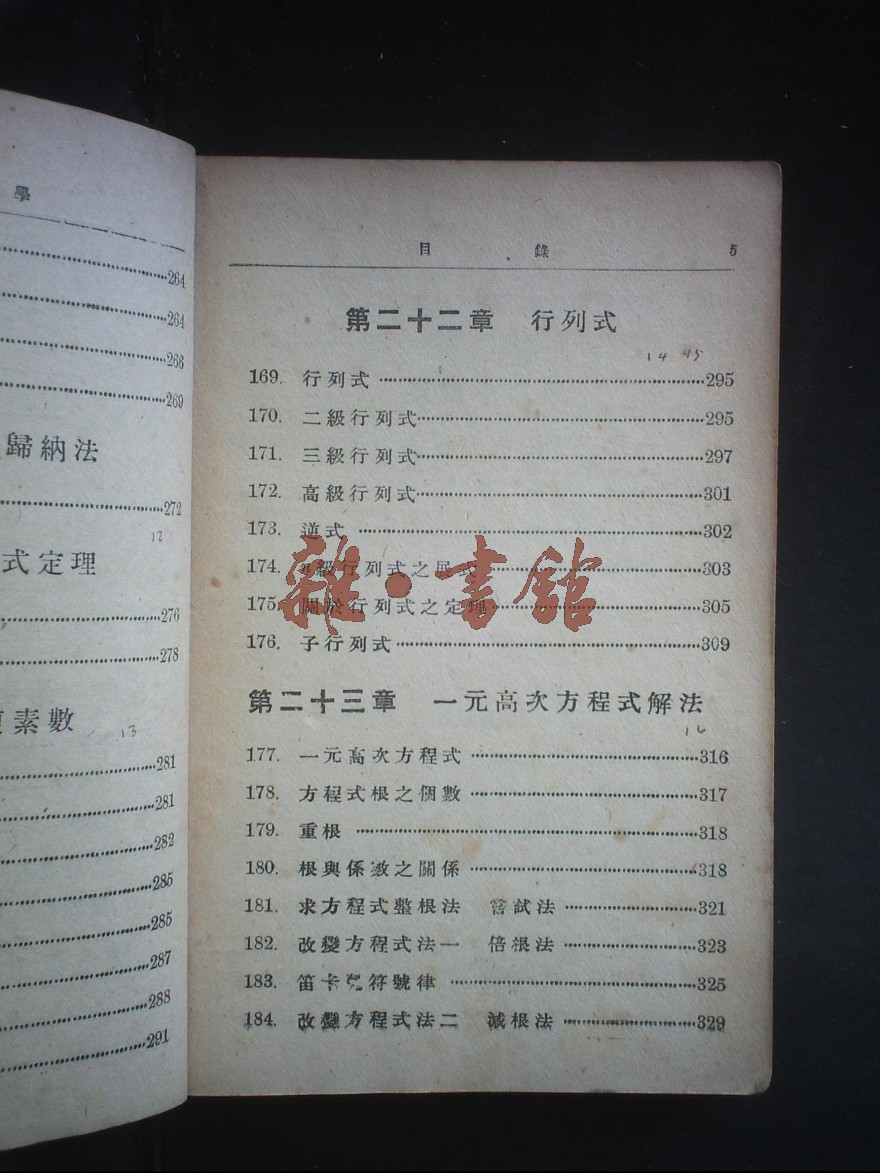 學
264
264
266
269
歸納法
272
12
式定理
276
278
素數
13
281
281
282
285
285
287
288
291
目 錄 5
第二十二章 行列式
14 15
169. 行列式 295
170. 二級行列式 295
171. 三級行列式 297
172. 高級行列式 301
173. 逆式 302
174. 級行列式之展式 303
175. 關於行列式之定理 305
176. 子行列式 309
雜·書館
第二十三章 一元高次方程式解法
16
177. 一元高次方程式 316
178. 方程式根之個數 317
179. 重根 318
180. 根與係數之關係 318
181. 求方程式整根法 嘗試法 321
182. 改變方程式法一 倍根法 323
183. 笛卡兒符號律 325
184. 改變方程式法二 減根法 329